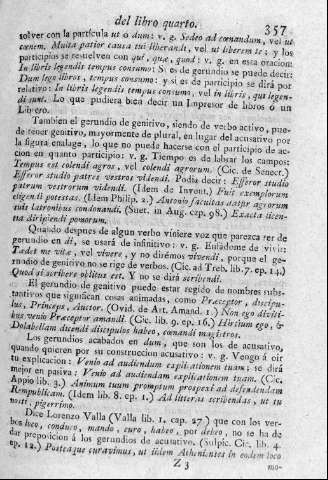 del libro quarto. 357
solver con la partícula ut ó dum: v. g. Sedeo ad cœnandum, vel ut
cœnem. Multa patior causa tui liberandi, vel ut liberem te; y los
participios se resuelven con qui, quæ, quod: v. g. en esta oracion:
In libris legendis tempus consumo; Si es de gerundio se puede decir:
Dum lego libros, tempus consumo: y si es de participio se dirá por
relativo: In libris legendis tempus consumo, vel in libris, qui legen-
di sunt. Lo que pudiera bien decir un Impresor de libros ó un
Librero.
Tambien el gerundio de genitivo, siendo de verbo activo, pue-
de tener genitivo, mayormente de plural, en lugar del acusativo por
la figura enalage, lo que no puede hacerse con el participio de ac-
cion en quanto participio: v. g. Tiempo es de labrar los campos:
Tempus est colendi agros, vel colendi agrorum. (Cic. de Senect.)
Efferor studio patres vestros videndi. Podia decir: Efferor studio
patrum vestrorum videndi. (Idem de Invent.) Fuit exemplorum
eligendi potestas. (Idem Philip. 2.) Antonio facultas datur agrorum
suis latronibus condonandi. (Suet. in Aug. cap. 98.) Exacta licen-
tia diripiendi pomorum.
Quando despues de algun verbo viniere voz que parezca ser de
gerundio en di, se usará de infinitivo: v. g. Enfádome de vivir:
Tædet me vitæ, vel vivere, y no dirémos vivendi, porque el ge-
rundio de genitivo no se rige de verbos. (Cic. ad Treb. lib. 7. ep. 14.)
Quod si scribere oblitus est. Y no se dirá scribendi.
El gerundio de genitivo puede estar regido de nombres subs-
tantivos que significan cosas animadas, como Præceptor, discipu-
lus, Princeps, Auctor. (Ovid. de Art. Amand. 1.) Non ego diviti-
bus venio Præceptor amandi. (Cic. lib. 9. ep. 16.) Hirtium ego, &
Dolabellam dicendi discipulos habeo, cœnandi magistros.
Los gerundios acabados en dum, que son los de acusativo,
quando quieren por su construccion acusativo: v. g. Vengo á oir
tu explicacion: Venio ad audiendum explicationem tuam; se dirá
mejor en pasiva: Venio ad audiendam explicationem tuam. (Cic.
Appio lib. 3.) Animum tuum promptum prospexi ad defendendam
Rempublicam. (Idem lib. 8. ep. 1.) Ad litteras scribendas, ut tu
nosti, pigerrimo.
Dice Lorenzo Valla (Valla lib. 1. cap. 27.) que con los ver-
bos loco, conduco, mando, curo, habeo, por debeo, no se ha de
dar preposicion á los gerundios de acusativo. (Sulpic. Cic. lib. 4.
ep. 12.) Posteaque curavimus, ut iidem Athenientes in eodem loco
Z 3 mo-